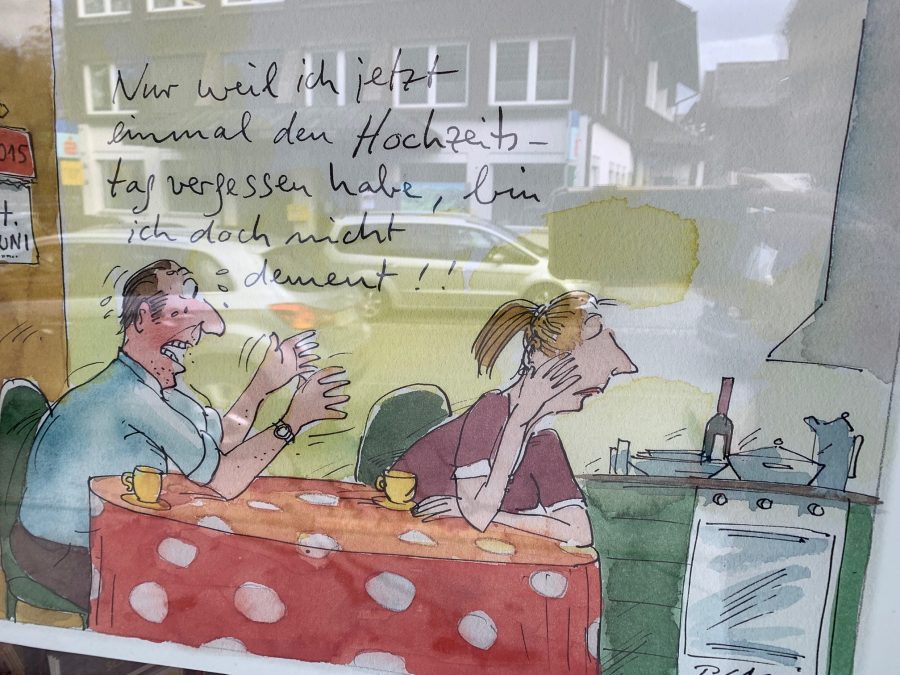 Nur weil ich jetzt
einmal den Hochzeits-
tag vergessen habe, bin
ich doch nicht
dement !!
2015
UNI